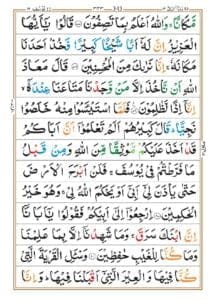 مَّكَانًا ۚ وَاللّٰهُ اَعْلَمُ بِمَا تَصِفُوْنَ ۞ قَالُوْا يٰۤاَيُّهَا
الْعَزِيْزُ اِنَّ لَهٗۤ اَبًا شَيْخًا كَبِيْرًا فَخُذْ اَحَدَنَا
مَكَانَهٗ ۚ اِنَّا نَرٰىكَ مِنَ الْمُحْسِنِيْنَ ۞ قَالَ مَعَاذَ
اللّٰهِ اَنْ نَّاْخُذَ اِلَّا مَنْ وَّجَدْنَا مَتَاعَنَا عِنْدَهٗۤ ۙ
اِنَّاۤ اِذًا لَّظٰلِمُوْنَ ۞ فَلَمَّا اسْتَيْـَٔسُوْا مِنْهُ خَلَصُوْا
نَجِيًّا ؕ قَالَ كَبِيْرُهُمْ اَلَمْ تَعْلَمُوْۤا اَنَّ اَبَاكُمْ
قَدْ اَخَذَ عَلَيْكُمْ مَّوْثِقًا مِّنَ اللّٰهِ وَمِنْ قَبْلُ
مَا فَرَّطْتُّمْ فِيْ يُوْسُفَ ۚ فَلَنْ اَبْرَحَ الْاَرْضَ
حَتّٰى يَاْذَنَ لِيْۤ اَبِيْۤ اَوْ يَحْكُمَ اللّٰهُ لِيْ ۚ وَهُوَ خَيْرُ
الْحٰكِمِيْنَ ۞ اِرْجِعُوْۤا اِلٰۤى اَبِيْكُمْ فَقُوْلُوْا يٰۤاَبَانَاۤ
اِنَّ ابْنَكَ سَرَقَ ۚ وَمَا شَهِدْنَاۤ اِلَّا بِمَا عَلِمْنَا
وَمَا كُنَّا لِلْغَيْبِ حٰفِظِيْنَ ۞ وَسْـَٔلِ الْقَرْيَةَ الَّتِيْ
كُنَّا فِيْهَا وَالْعِيْرَ الَّتِيْۤ اَقْبَلْنَا فِيْهَا ؕ وَاِنَّا